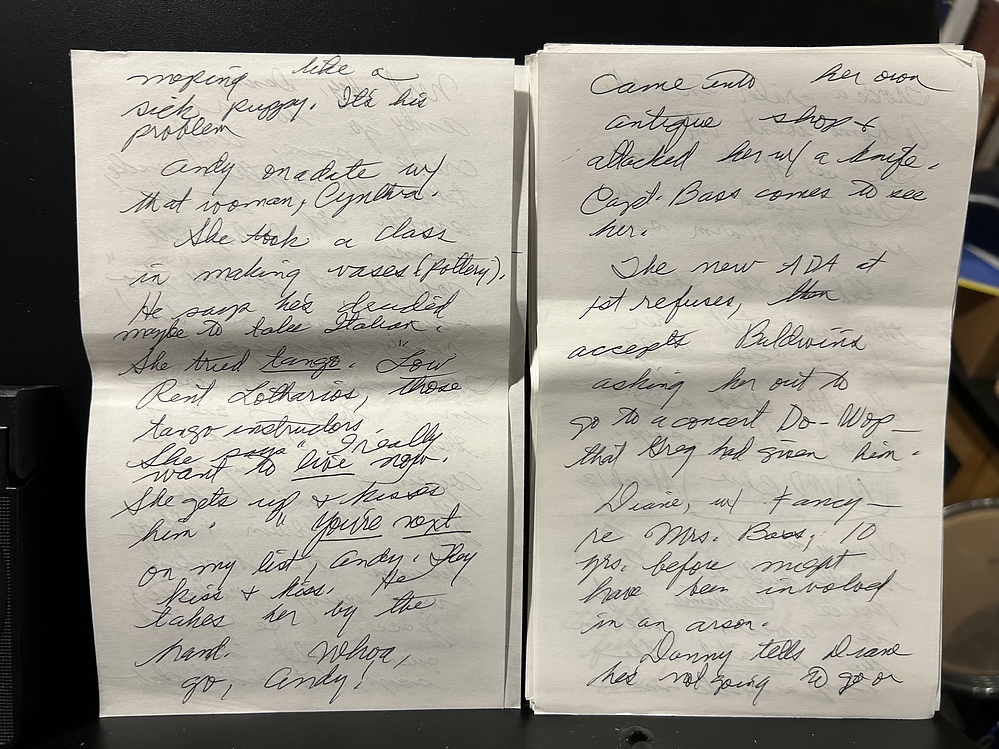 moping like a
sick puppy. It's his
problem
Andy on a date w/
that woman, Cynthia.
She took a class
in making vases (pottery).
He says he's decided
maybe to take Italian.
She tried tango. "Low
Rent Lotharios, those
tango instructors.
She says "I really
want to live now.
She gets up & kisses
him" "You're next
on my list, Andy. They
kiss & kiss. He
takes her by the
hand. Whoa,
go, Andy!
Came into her own
antique shop &
attacked her w/ a knife.
Capt. Bass comes to see
her.
The new ADA at
1st refuses, then
accepts Baldwin's
asking her out to
go to a concert Do-Wop—
that Greg had given him.
Diane, w/ Fancy—
re Mrs. Bass, 10
yrs. before might
have been involved
in an arson.
Danny tells Diane
he's not going to go on